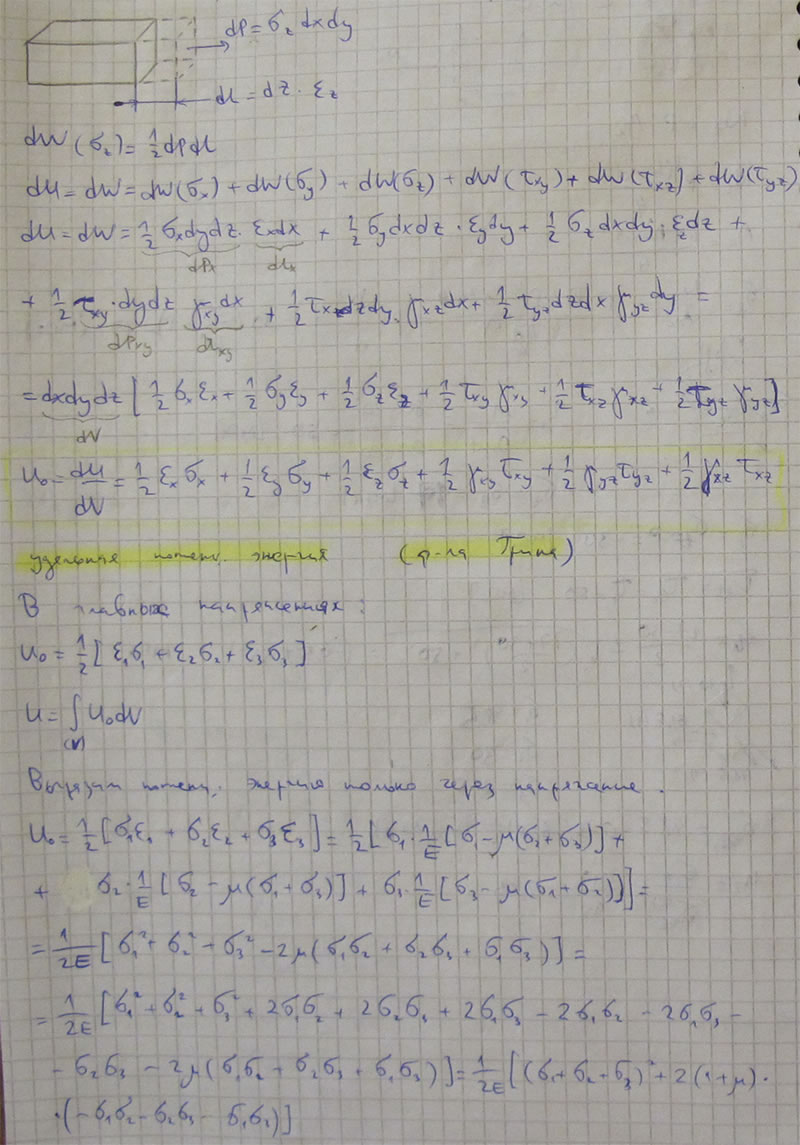 dP = σ_z dxdy
dl = dz · ε_z
dW (σ_z) = 1/2 dPdl
dU = dW = dW(σ_x) + dW(σ_y) + dW(σ_z) + dW(τ_xy) + dW(τ_xz) + dW(τ_yz)
dU = dW = 1/2 σ_x dydz · ε_x dx + 1/2 σ_y dxdz · ε_y dy + 1/2 σ_z dxdy · ε_z dz +
dP_x dl_x
+ 1/2 τ_xy · dydz γ_xy dx + 1/2 τ_xz dzdy · γ_xz dx + 1/2 τ_yz dzdx γ_yz dy =
dP_xy dl_xy
= dxdydz [ 1/2 σ_x ε_x + 1/2 σ_y ε_y + 1/2 σ_z ε_z + 1/2 τ_xy γ_xy + 1/2 τ_xz γ_xz + 1/2 τ_yz γ_yz ]
dV
U₀ = dU/dV = 1/2 ε_x σ_x + 1/2 ε_y σ_y + 1/2 ε_z σ_z + 1/2 γ_xy τ_xy + 1/2 γ_yz τ_yz + 1/2 γ_xz τ_xz
удельная потенц. энергия (ф-ла Грина)
В главных напряжениях:
U₀ = 1/2 [ ε₁σ₁ + ε₂σ₂ + ε₃σ₃ ]
U = ∫ U₀dV
(V)
Выразим потенц. энергия только через напряжение.
U₀ = 1/2 [σ₁ε₁ + σ₂ε₂ + σ₃ε₃] = 1/2 [ σ₁ · 1/E [σ₁ − μ(σ₂ + σ₃)] +
+ σ₂ · 1/E [σ₂ − μ(σ₁ + σ₃)] + σ₃ · 1/E [σ₃ − μ(σ₁ + σ₂)]] =
= 1/2E [σ₁² + σ₂² + σ₃² − 2μ(σ₁σ₂ + σ₂σ₃ + σ₁σ₃)] =
= 1/2E [σ₁² + σ₂² + σ₃² + 2σ₁σ₂ + 2σ₂σ₃ + 2σ₁σ₃ − 2σ₁σ₂ − 2σ₁σ₃ −
− σ₂σ₃ − 2μ(σ₁σ₂ + σ₂σ₃ + σ₁σ₃)] = 1/2E [(σ₁ + σ₂ + σ₃)² + 2(1+μ) ·
· (−σ₁σ₂ − σ₂σ₃ − σ₁σ₃)]